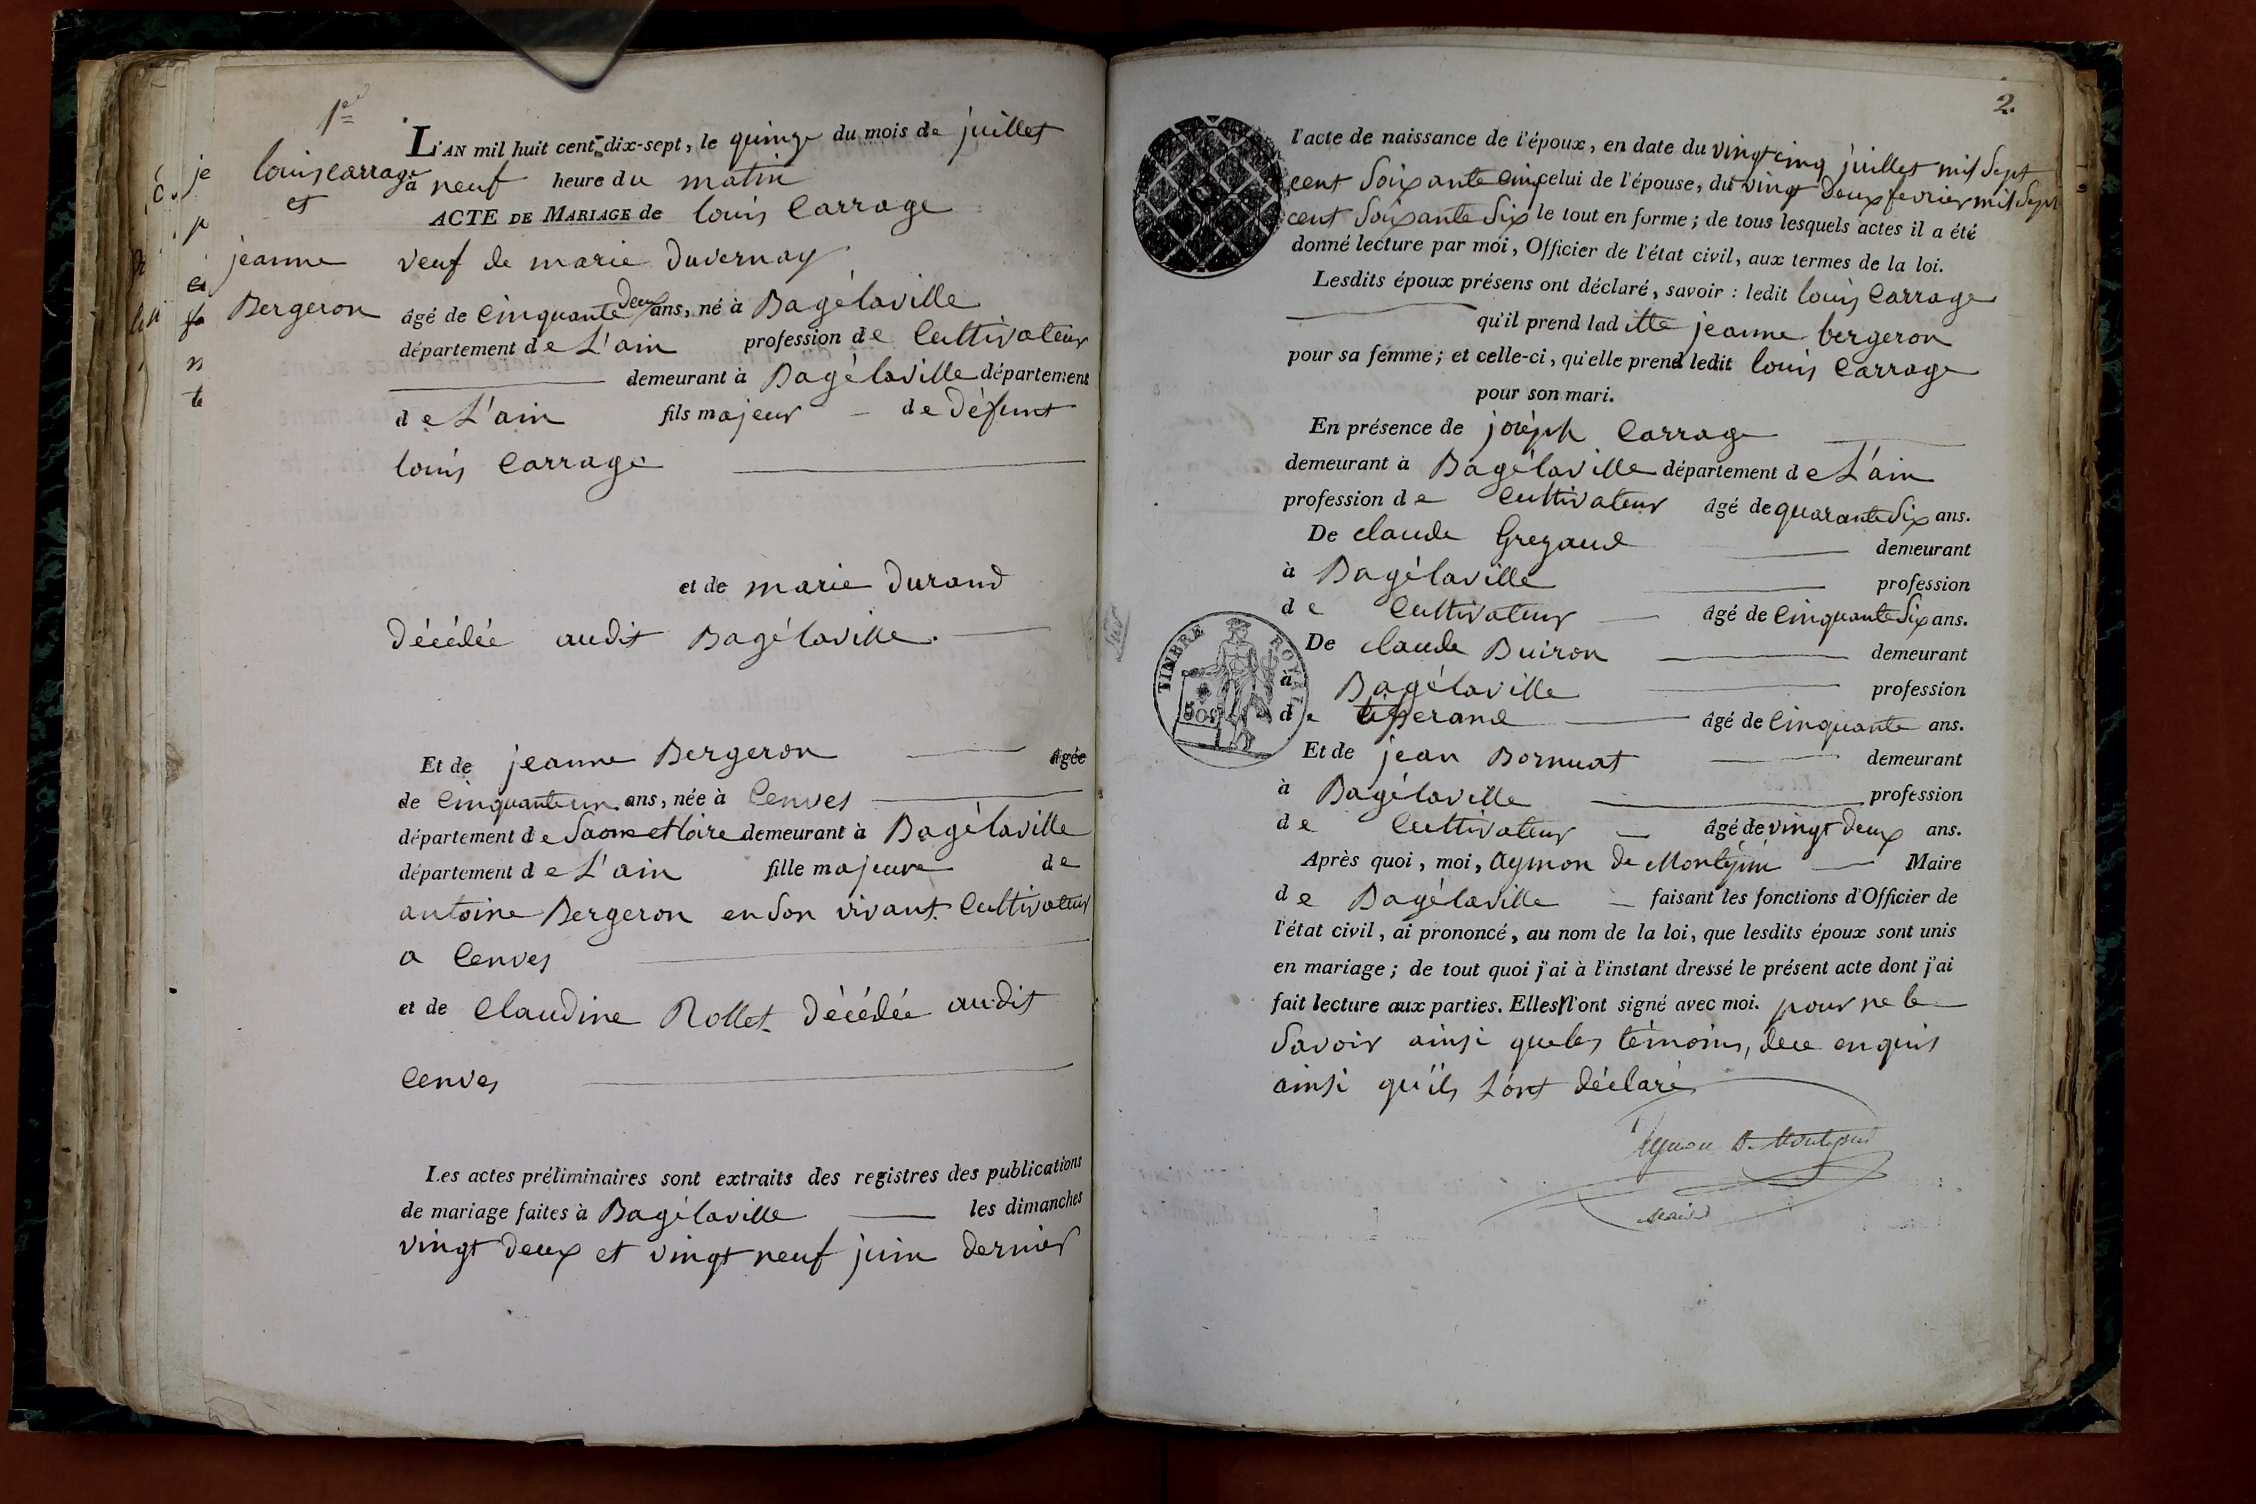 1er
louis carrage
et
jeanne
Bergeron
je
c.
p
ci
fe
n
te
L'AN mil huit cent dix-sept, le quinze du mois de juillet
à neuf heure du matin
ACTE DE MARIAGE de louis Carrage
veuf de marie Duvernay
âgé de Cinquante deux ans, né à Bagélaville
département de L'ain profession de Cultivateur
demeurant à Bagélaville département
de L'ain fils majeur de défunt
louis Carrage
et de marie durand
décédée audit Bagélaville.
Et de jeanne Bergeron âgée
de Cinquante un ans, née à Cenves
département de Saone et loire demeurant à Bagélaville
département de L'ain fille majeure de
antoine Bergeron en son vivant Cultivateur
a Cenves
et de Claudine Rollet décédée audit
Cenves
Les actes préliminaires sont extraits des registres des publications
de mariage faites à Bagélaville les dimanches
vingt deux et vingt neuf juin dernier
2.
l'acte de naissance de l'époux, en date du vingt cinq juillet mil sept
cent soixante cinq celui de l'épouse, du vingt deux fevrier mil sept
cent soixante six le tout en forme; de tous lesquels actes il a été
donné lecture par moi, Officier de l'état civil, aux termes de la loi.
Lesdits époux présens ont déclaré, savoir : ledit louis Carrage
qu'il prend laditte jeanne bergeron
pour sa femme; et celle-ci, qu'elle prend ledit louis Carrage
pour son mari.
En présence de joséph Carrage
demeurant à Bagélaville département de L'ain
profession de Cultivateur âgé de quarante six ans.
De claude Gregaud demeurant
à Bagélaville profession
de Cultivateur âgé de Cinquante six ans.
De claude Buiron demeurant
à Bagélaville profession
de tisserand âgé de Cinquante ans.
TIMBRE ROYAL
50c
Et de jean Bornuat demeurant
à Bagélaville profession
de Cultivateur âgé de vingt deux ans.
Après quoi, moi, aymon de Montépin Maire
de Bagélaville faisant les fonctions d'Officier de
l'état civil, ai prononcé, au nom de la loi, que lesdits époux sont unis
en mariage; de tout quoi j'ai à l'instant dressé le présent acte dont j'ai
fait lecture aux parties. Elles n'ont signé avec moi. pour ne le
savoir ainsi que les témoins, de ce enquis
ainsi qu'ils L'ont déclaré
Aymon De Montepin
maire